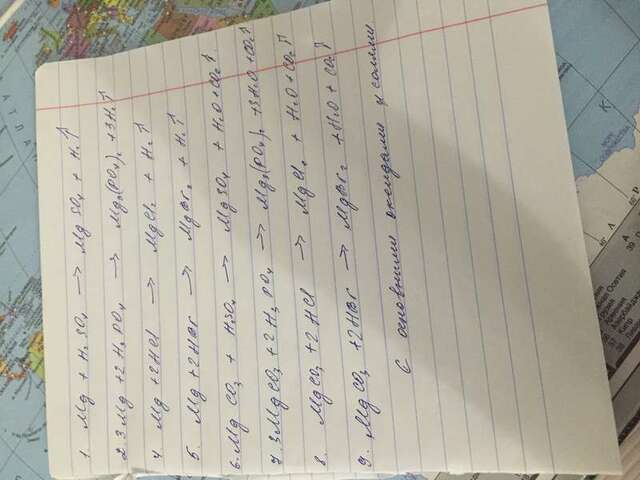 АТЛА
1. Mg + H₂SO₄ → MgSO₄ + H₂↑
2. 3Mg + 2H₃PO₄ → Mg₃(PO₄)₂ + 3H₂↑
4 Mg + 2HCl → MgCl₂ + H₂↑
5. Mg + 2HBr → MgBr₂ + H₂↑
6. MgCO₃ + H₂SO₄ → MgSO₄ + H₂O + CO₂↑
7. 3MgCO₃ + 2H₃PO₄ → Mg₃(PO₄)₂ + 3H₂O + CO₂↑
8. MgCO₃ + 2HCl → MgCl₂ + H₂O + CO₂↑
9. MgCO₃ + 2HBr → MgBr₂ + H₂O + CO₂↑
С основными оксидами и солями
Осетия
Армения
Азербайджан
Кипр